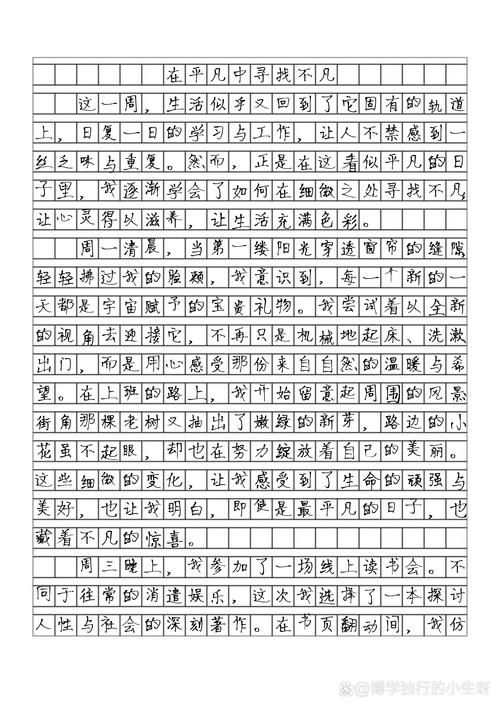 在平凡中寻找不凡
这一周，生活似乎又回到了它固有的轨道
上，日复一日的学习与工作，让人不禁感到一
丝乏味与重复。然而，正是在这看似平凡的日
子里，我逐渐学会了如何在细微之处寻找不凡，
让心灵得以滋养，让生活充满色彩。
周一清晨，当第一缕阳光穿透窗帘的缝隙，
轻轻拂过我的脸颊，我意识到，每一个新的一
天都是宇宙赋予的宝贵礼物。我尝试着以全新
的视角去迎接它，不再只是机械地起床、洗漱、
出门，而是用心感受那份来自自然的温暖与希
望。在上班的路上，我开始留意起周围的风景
街角那棵老树又抽出了嫩绿的新芽，路边的小
花虽不起眼，却也在努力绽放着自己的美丽。
这些细微的变化，让我感受到了生命的顽强与
美好，也让我明白，即使是最平凡的日子，也
藏着不凡的惊喜。
周三晚上，我参加了一场线上读书会。不
同于往常的消遣娱乐，这次我选择了一本探讨
人性与社会的深刻著作。在书页翻动间，我仿
@博学独行的小生呀